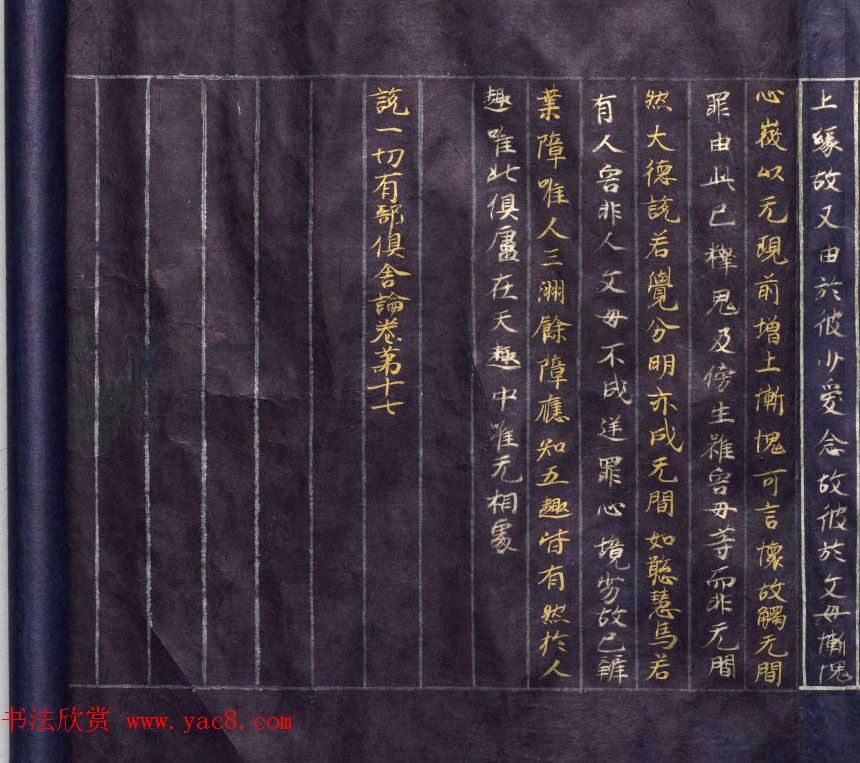 上緣故又由於彼少愛念故彼於父母慚愧
心㣲以无現前增上慚愧可言壞故觸无間
罪由此已釋鬼及傍生雖害母等而非无間
然大德說若覺分明亦成无間如聡慧馬若
有人害非人父母不成逆罪心境劣故已辯
業障唯人三洲餘障應知五趣皆有然於人
趣唯此俱盧在天趣中唯无相處
說一切有部俱舍論卷第十七
书法欣赏 www.yac8.com